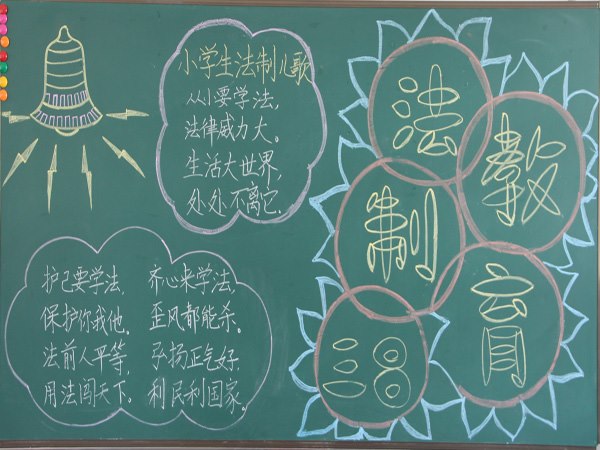 小学生法制儿歌
从小要学法,
法律威力大。
生活大世界,
处处不离它.
护己要学法,
保护你我他。
法前人平等,
用法闯天下。
齐心来学法,
歪风都能杀。
弘扬正气好,
利民利国家。
法
制
教
育